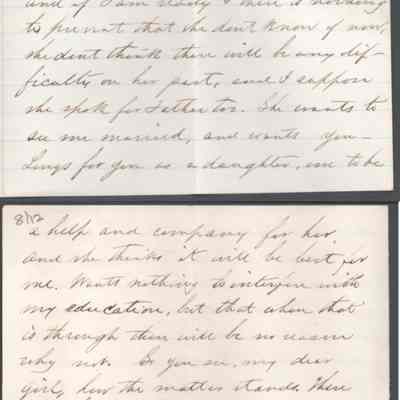 and if I am ready & there is nothing
to prevent that she dont know of now,
she dont think there will be any dif-
ficulty on her part, and I suppose
she spok for Father too. She wants to
see me married, and wants you—
Longs for you as a daughter, one to be
8/12
a help and company for her
and she thinks it will be best for
me. Wants nothing to interfere with
my education, but that when that
is through there will be no reason
why not. So you see, my dear
girl, how the matter stands. There